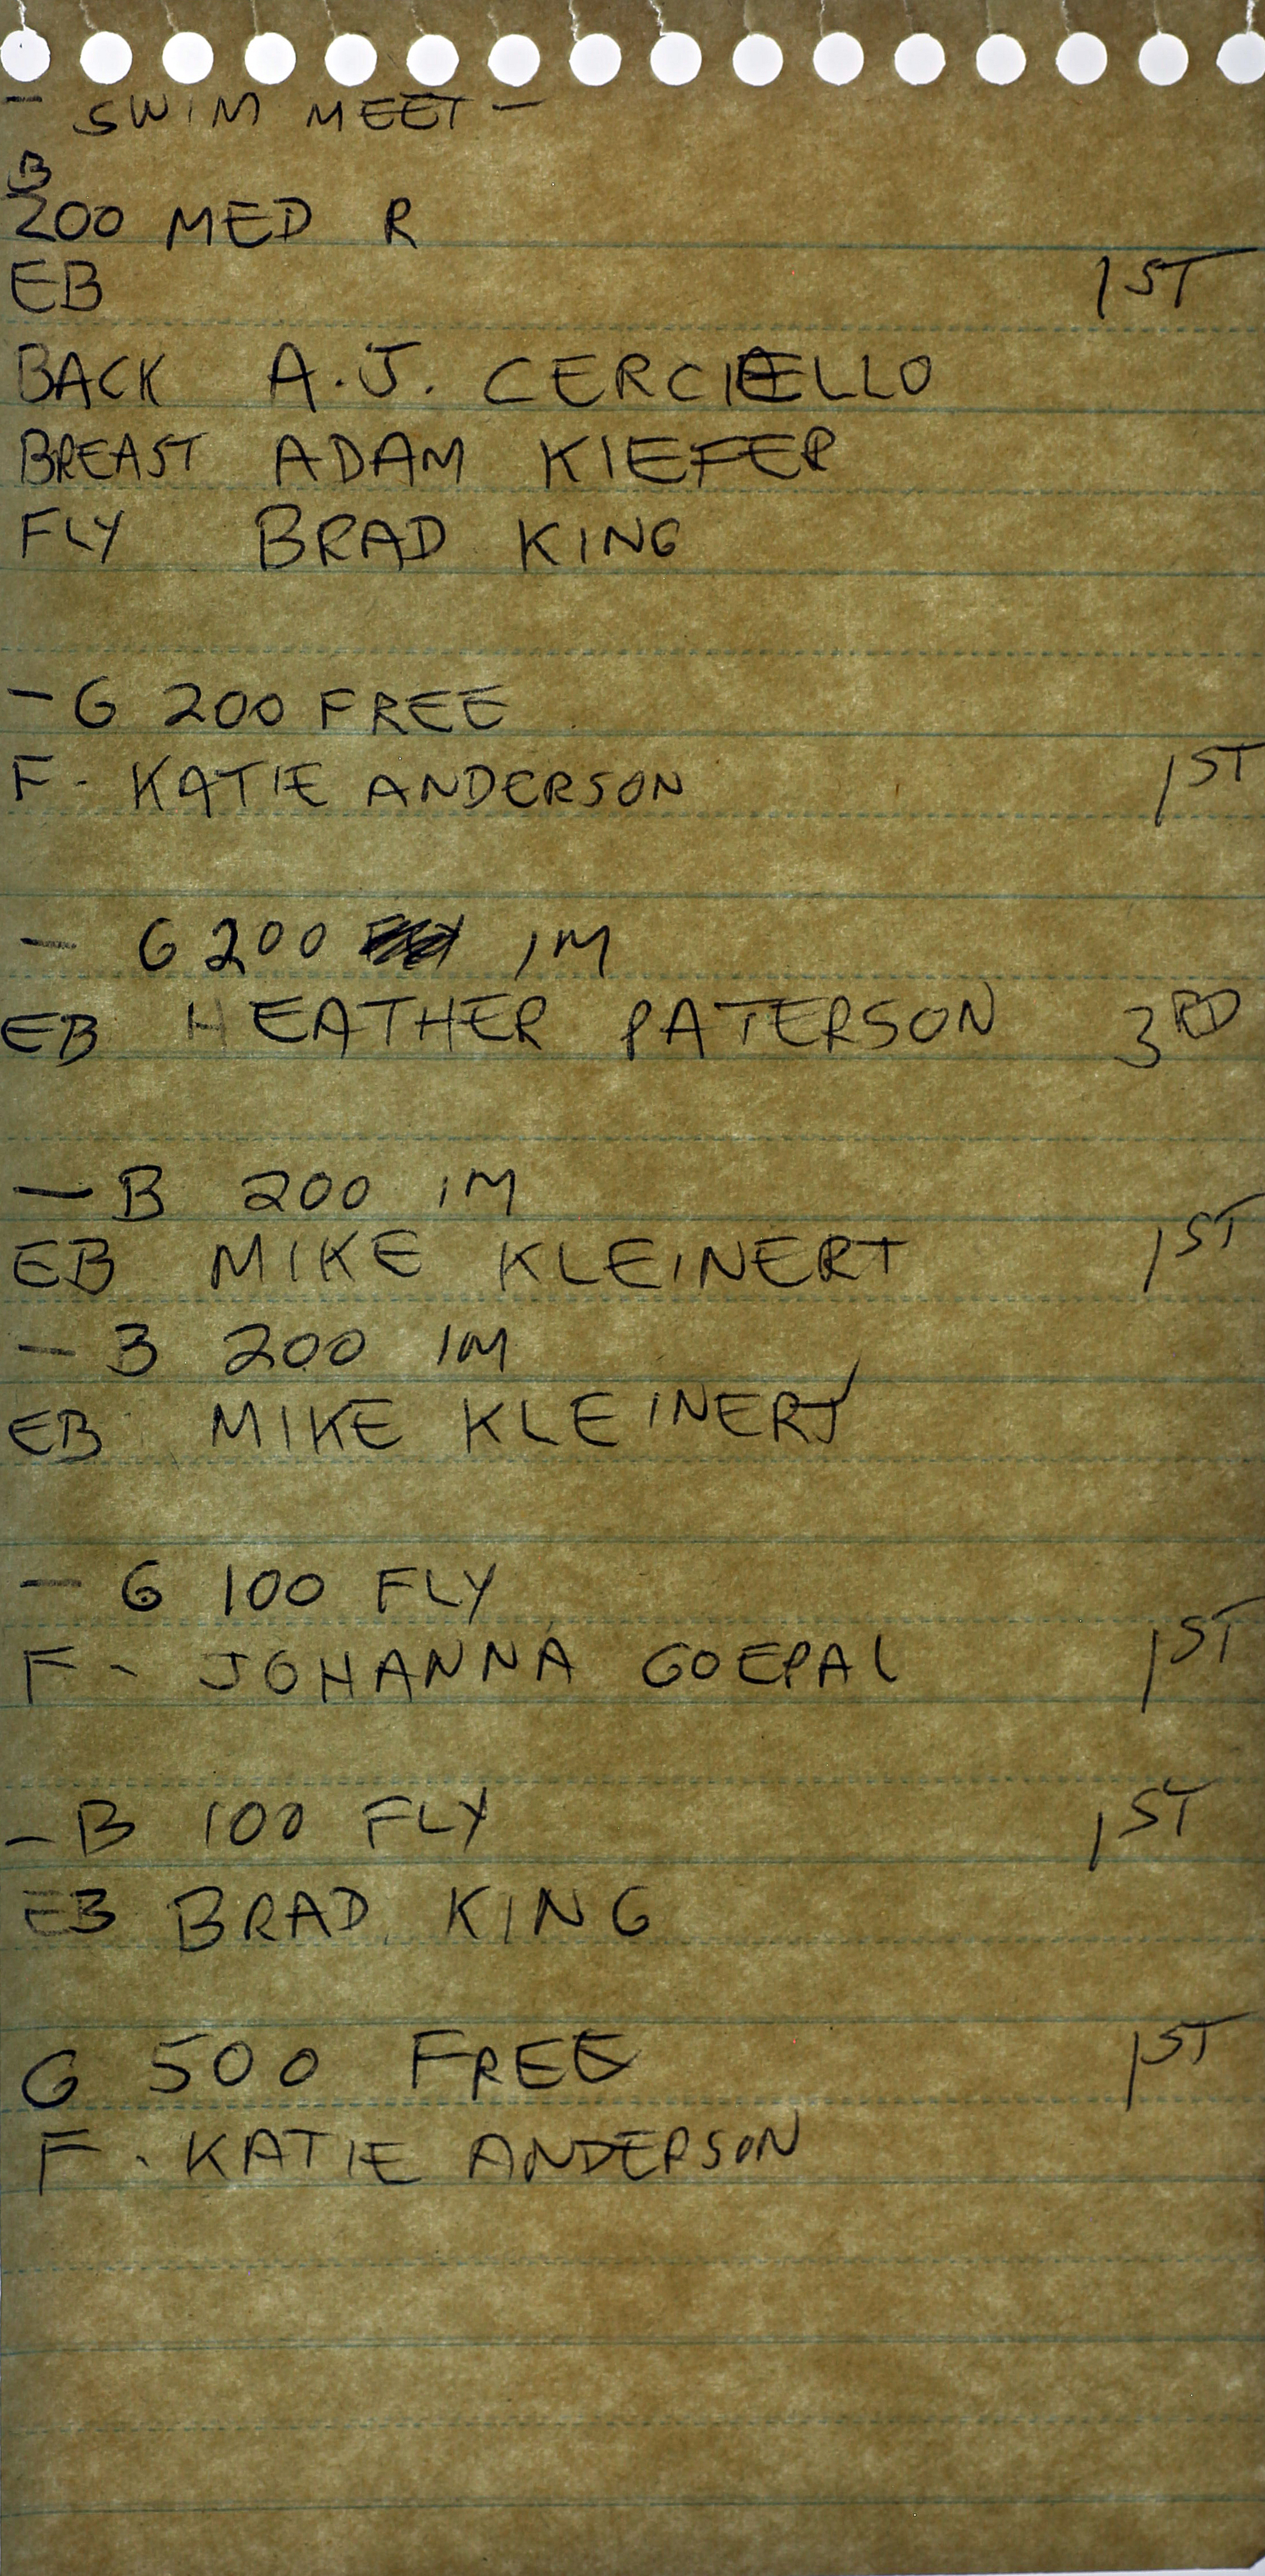 - SWIM MEET -
B
200 MED R
EB 1ST
BACK A.J. CERCIELLO
BREAST ADAM KIEFER
FLY BRAD KING
- G 200 FREE
F - KATIE ANDERSON 1ST
- G 200 IM
EB HEATHER PATERSON 3RD
- B 200 IM
EB MIKE KLEINERT 1ST
- B 200 IM
EB MIKE KLEINERT
- G 100 FLY
F - JOHANNA GOEPAL 1ST
- B 100 FLY 1ST
EB BRAD KING
G 500 FREE 1ST
F - KATIE ANDERSON